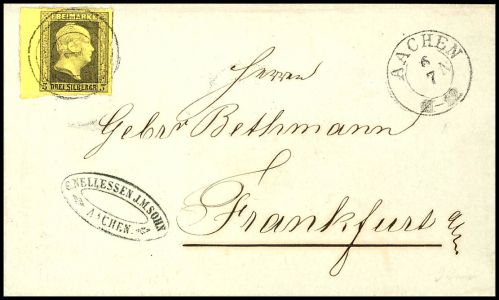 FREIMARKE
3 DREI SILBERGR. 3
AACHEN
6
7
Herren
Gebrr Bethmann
C. NELLESSEN J.M. SOHN
AACHEN.
Frankfurt a/m